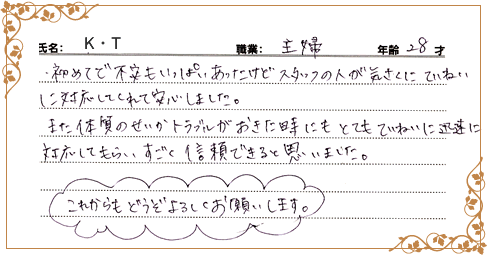 氏名: K・T 職業: 主婦 年齢 28 才
初めてで不安もいっぱいあったけどスタッフの人が気さくにていねい
に対応してくれて安心しました。
また体質のせいかトラブルがおきた時にもとてもていねいに迅速に
対応してもらいすごく信頼できると思いました。
これからもどうぞよろしくお願いします。